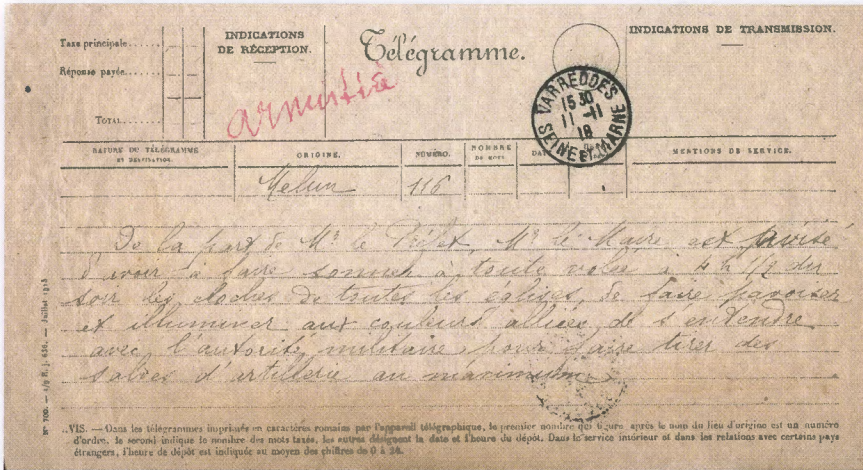 Taxe principale......
Réponse payée......
TOTAL......
INDICATIONS
DE RÉCEPTION.
Télégramme.
INDICATIONS DE TRANSMISSION.
armistice
VARREDDES
15 30
11 -11
18
SEINE ET MARNE
NATURE DU TÉLÉGRAMME
ET DESTINATION.
ORIGINE.
NUMÉRO.
NOMBRE
DE MOTS
MENTIONS DE SERVICE.
Melun
116
De la part de Mr le Préfet, Mr le Maire est invité
d'avoir à faire sonner à toute volée à 4 h 1/2 du
soir les cloches de toutes les églises, de faire pavoiser
et illuminer aux couleurs alliées, de s'entendre
avec l'autorité militaire pour faire tirer des
salves d'artillerie au maximum
N° 700. — Juillet
..VIS. — Dans les télégrammes imprimés en caractères romains par l'appareil télégraphique, le premier nombre qui figure après le nom du lieu d'origine est un numéro
d'ordre, le second indique le nombre des mots taxés, les autres désignent la date et l'heure du dépôt. Dans le service intérieur et dans les relations avec certains pays
étrangers, l'heure de dépôt est indiquée au moyen des chiffres de 0 à 24.